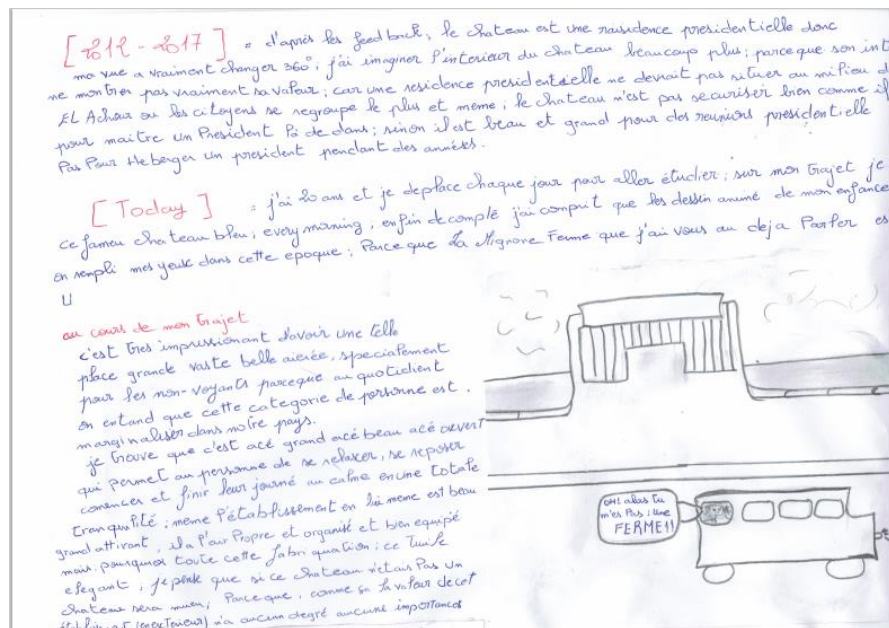 [2012 - 2017] = d'après les feedback, le chateau est une residence presidentielle donc
ma vue a vraiment changer 360°, j'ai imaginer l'interieur du chateau beaucoup plus; parceque son int
ne montrer pas vraiment sa valeur; car une residence presidentielle ne devrait pas situer au milieu d
EL Achour ou les citoyens se regroupe le plus et meme; le chateau n'est pas securiser bien comme il
pour maitre un President là de dans; sinon il est beau et grand pour des reunions presidentielle
Pas Pour Heberger un president pendant des années.
[Today] = j'ai 20 ans et je deplace chaque jour pour aller étudier; sur mon trajet je
ce fameu chateau bleu; every morning, enfin de compte j'ai comprit que les dessin animé de mon enfance
on rempli mes yeux dans cette epoque; Parceque La Mignone Ferme que j'ai vous au deja Parler es
U
au cours de mon trajet
c'est tres impressionant d'avoir une telle
place grande vaste belle aierée, specialement
pour les non-voyants parceque au quotidient
on entand que cette categorie de personne est
marginaliser dans notre pays.
je trouve que c'est acé grand acé beau acé ouvert
qui permet au personne de se relaxer, se reposer
comencer et finir leur journé au calme en une totale
tranquilité; meme l'établissement en lui meme est beau
grand attirant, il a l'air Propre et organisé et bien equipé
mais pourquoi toute cette fabriquation; ce tuile
elegant, je pense que si ce chateau n'etais Pas un
chateau sera mieu, Parceque, comme ça la valeur de cet
(exterieur) n'a aucun degré aucune importances
OH! alors tu
m'es Pas; Une
FERME!!